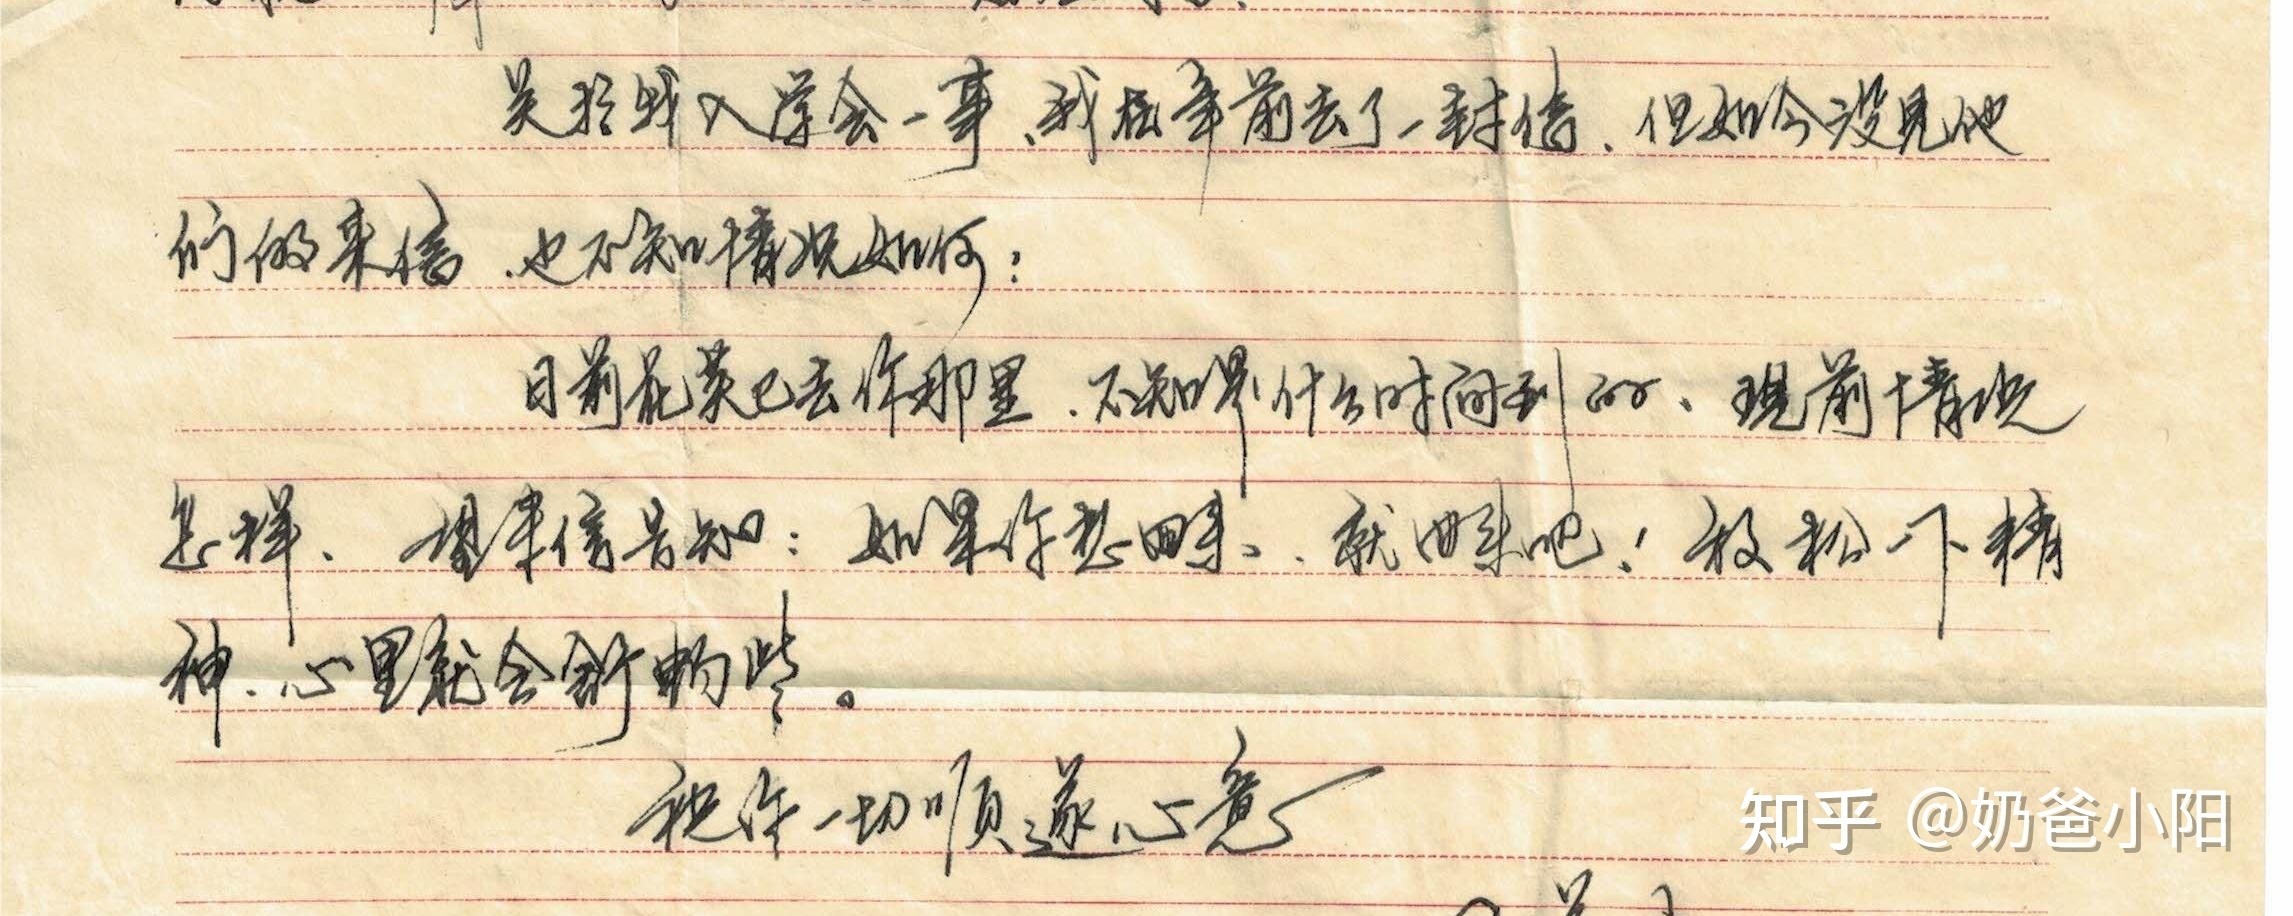 关于我入学会一事、我在年前去了一封信、但如今没见他
们的来信、也不知情况如何：
日前花英已去你那里、不知是什么时间到的、现前情况
怎样、望来信告知：如果你想回来、就回来吧！放松一下精
神、心里就会舒畅些。
祝你一切顺遂心意
知乎 @奶爸小阳